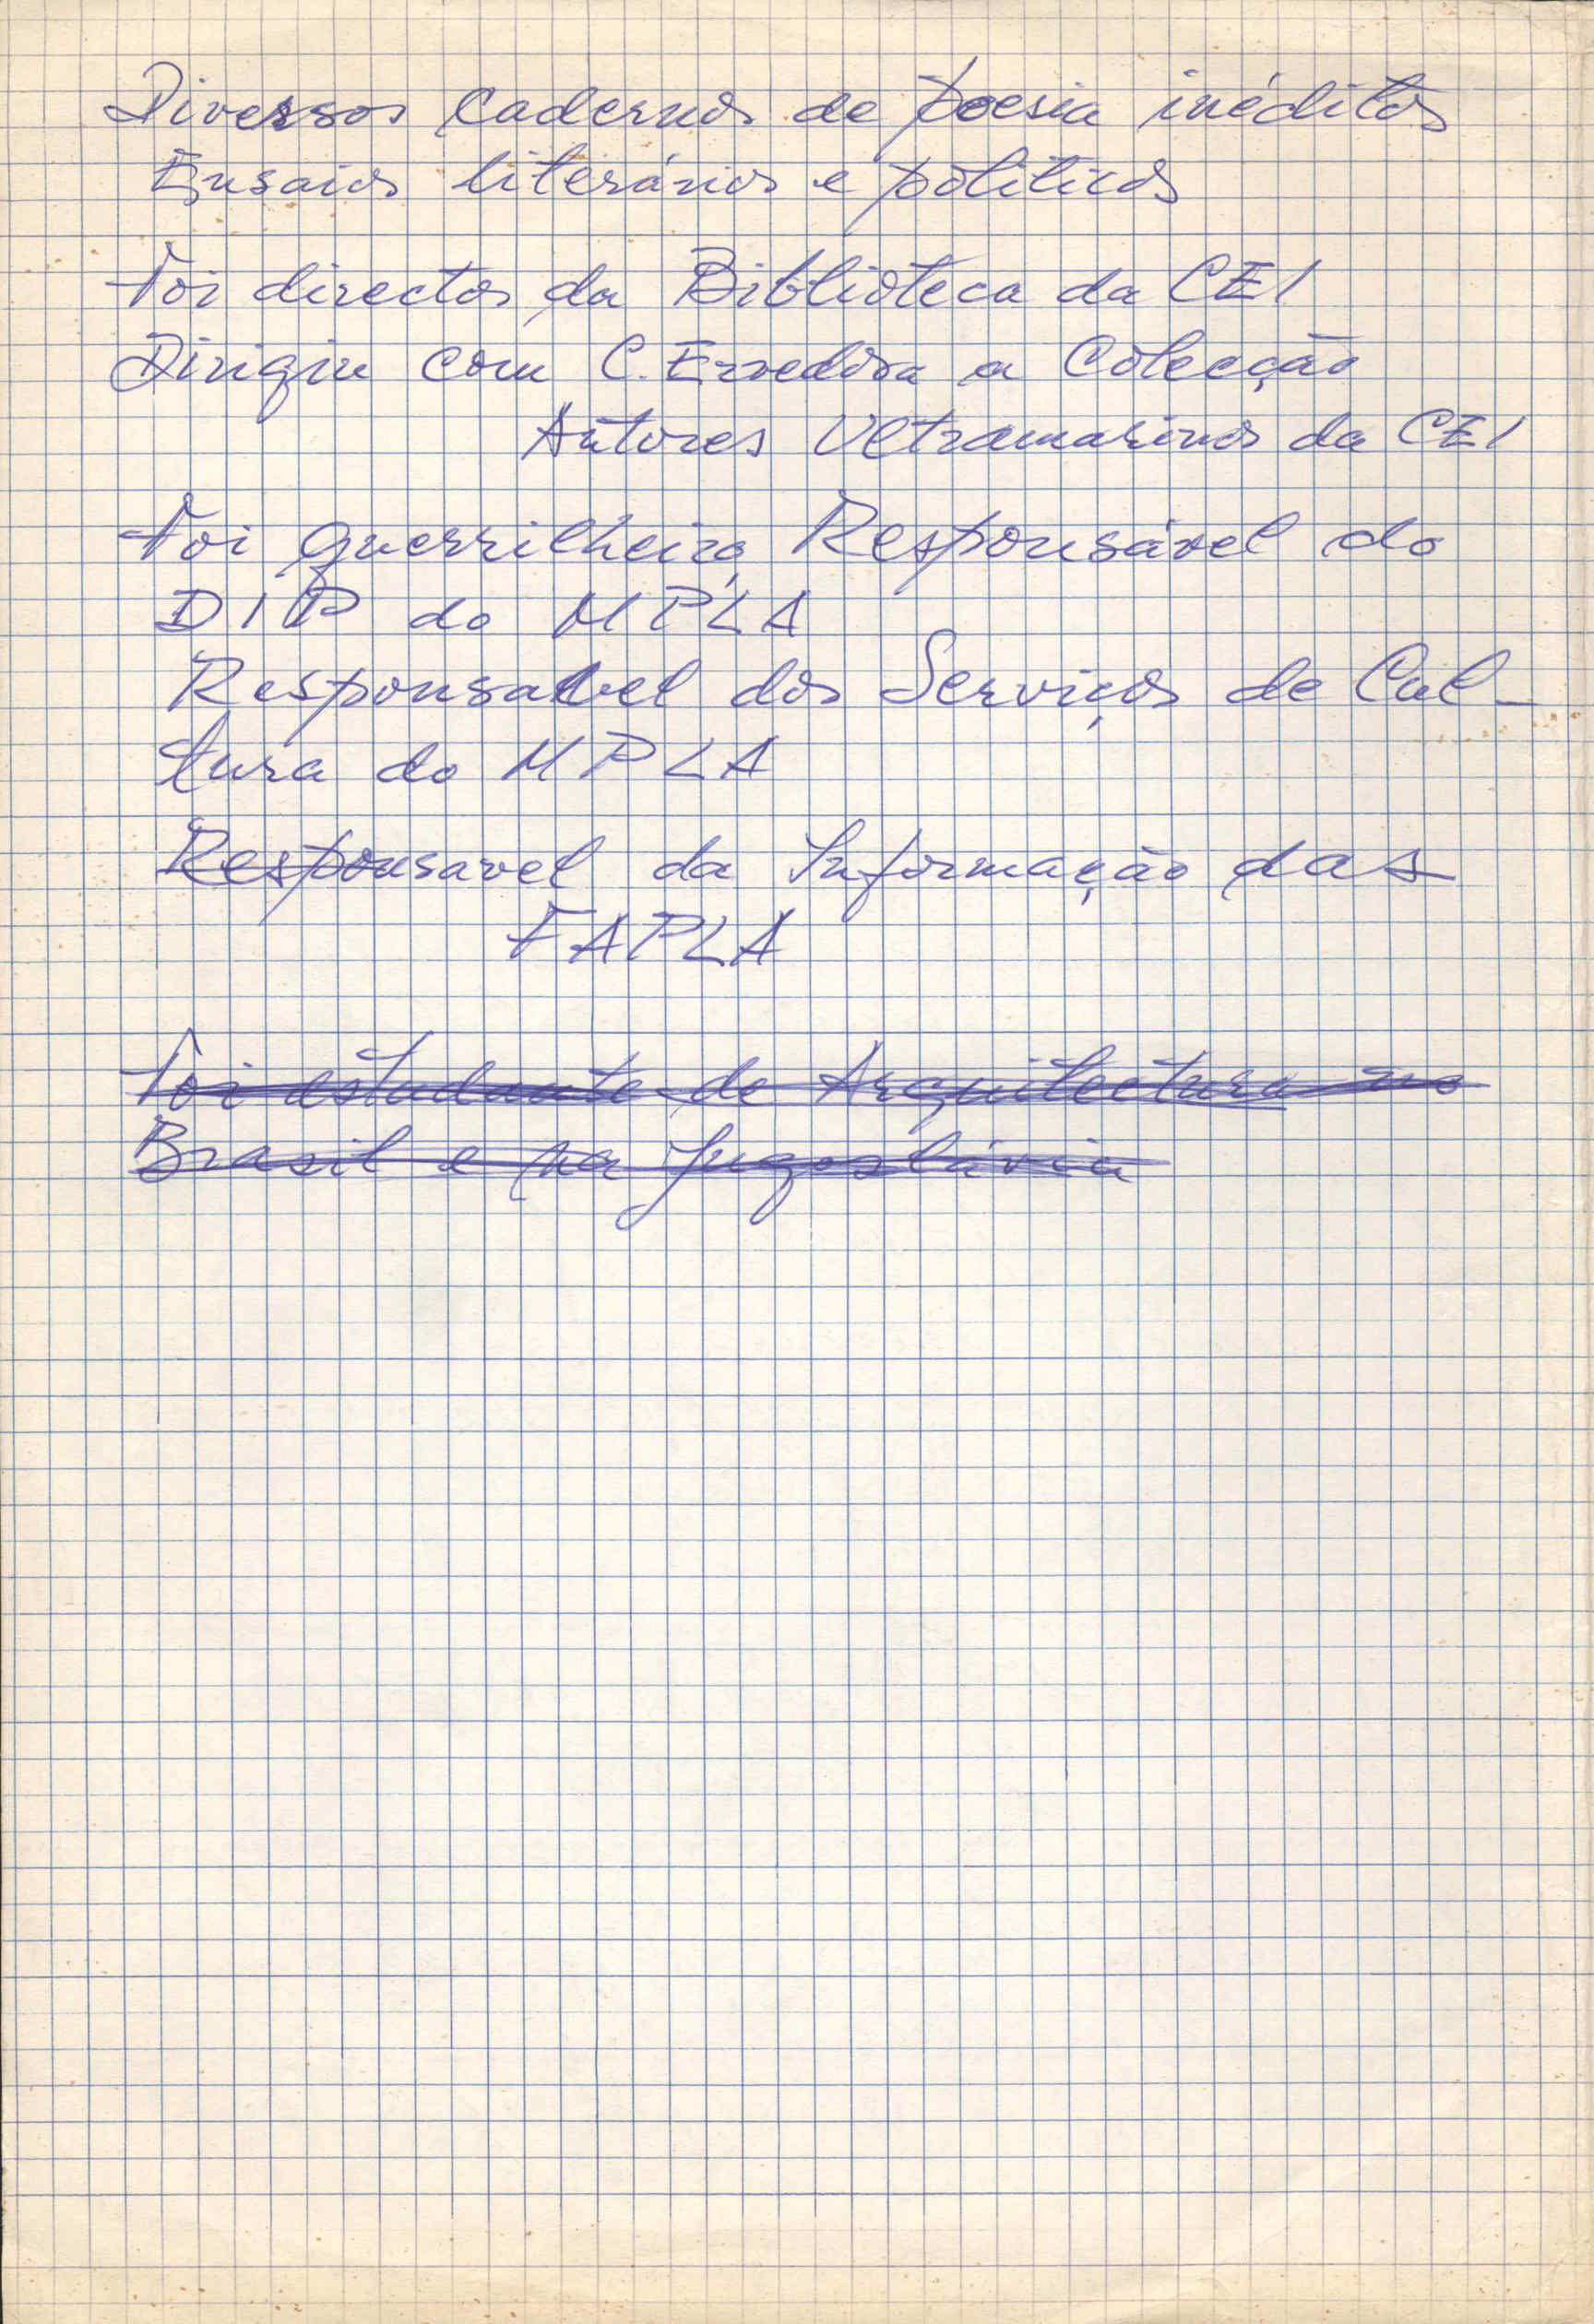 Diversos cadernos de poesia inéditos
Ensaios literários e políticos
Foi director da Biblioteca da CEI
Dirigiu com C. Ervedosa a Colecção
Autores Ultramarinos da CEI
Foi guerrilheiro, Responsável do
DIP do MPLA
Responsavel dos Serviços de Cul-
tura do MPLA
Responsavel da Informação das
FAPLA
Foi estudante de Arquitectura no
Brasil e na Jugoslávia